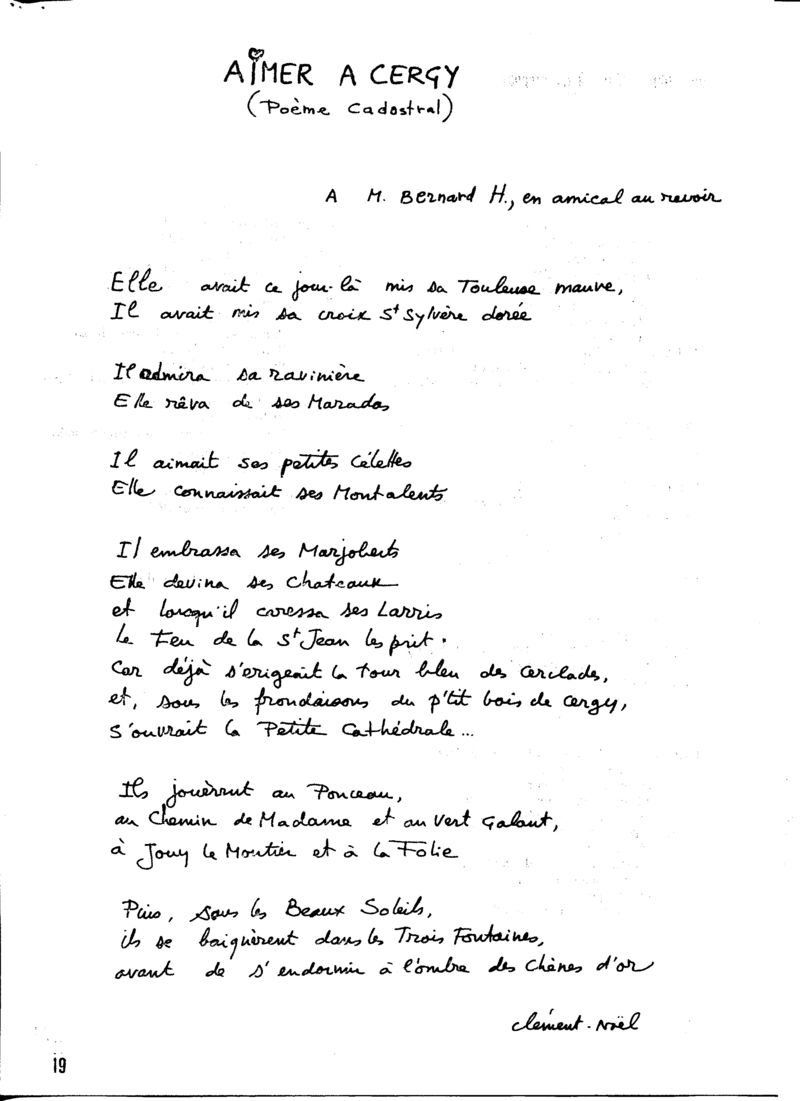 AiMER A CERGY
(Poème Cadastral)
A M. Bernard H., en amical au revoir
Elle avait ce jour-là mis sa Touleuse mauve,
Il avait mis sa croix St Sylvère dorée
Il admira sa ravinière
Elle rêva de ses Maradas
Il aimait ses petites Célettes
Elle connaissait ses Montalents
Il embrassa ses Marjoberts
Elle devina ses Chateaux
et lorsqu'il caressa ses Larris
le Feu de la St Jean les prit.
Car déjà s'erigeait la Tour bleu des Cerclades,
et, sous les frondaisons du p'tit bois de Cergy,
s'ouvrait la Petite Cathédrale...
Ils jouèrent au Ponceau,
au Chemin de Madame et au Vert Galant,
à Jouy le Moutier et à la Folie
Puis, sous les Beaux Soleils,
ils se baignèrent dans les Trois Fontaines,
avant de s'endormir à l'ombre des Chênes d'or
Clément-Noël
19